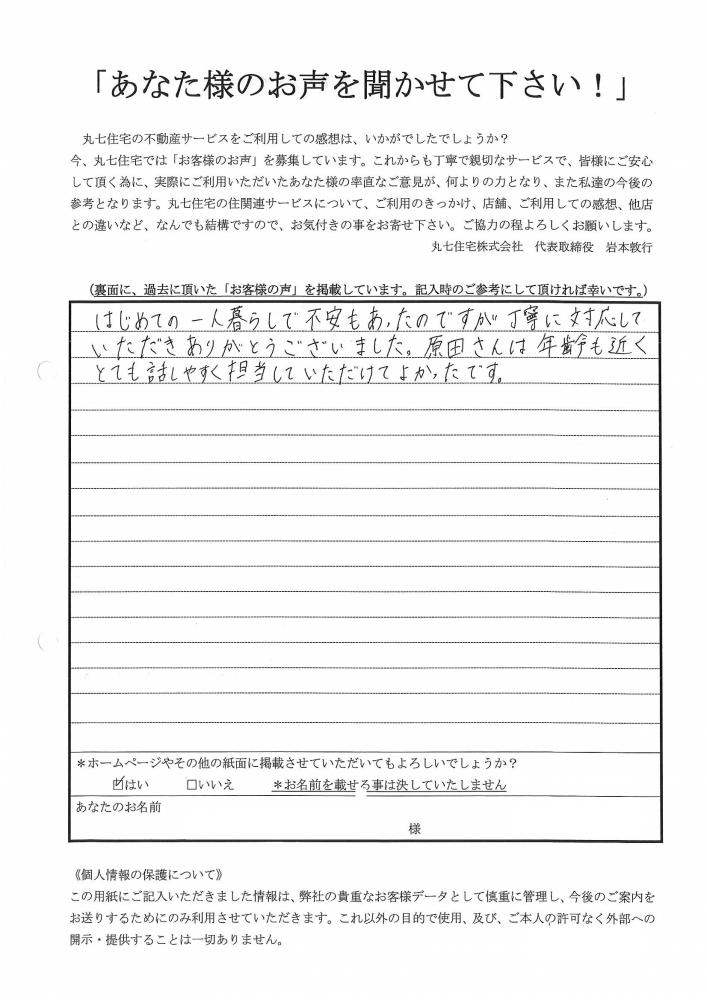 「あなた様のお声を聞かせて下さい！」
丸七住宅の不動産サービスをご利用しての感想は、いかがでしたでしょうか？
今、丸七住宅では「お客様のお声」を募集しています。これからも丁寧で親切なサービスで、皆様にご安心
して頂く為に、実際にご利用いただいたあなた様の率直なご意見が、何よりの力となり、また私達の今後の
参考となります。丸七住宅の住関連サービスについて、ご利用のきっかけ、店舗、ご利用しての感想、他店
との違いなど、なんでも結構ですので、お気付きの事をお寄せ下さい。ご協力の程よろしくお願いします。
丸七住宅株式会社　代表取締役　岩本敦行
（裏面に、過去に頂いた「お客様の声」を掲載しています。記入時のご参考にして頂ければ幸いです。）
はじめての一人暮らしで不安もあったのですが丁寧に対応して
いただきありがとうございました。原田さんは年齢も近く
とても話しやすく担当していただけてよかったです。
＊ホームページやその他の紙面に掲載させていただいてもよろしいでしょうか？
☑はい　□いいえ　＊お名前を載せる事は決していたしません
あなたのお名前
様
《個人情報の保護について》
この用紙にご記入いただきました情報は、弊社の貴重なお客様データとして慎重に管理し、今後のご案内を
お送りするためにのみ利用させていただきます。これ以外の目的で使用、及び、ご本人の許可なく外部への
開示・提供することは一切ありません。